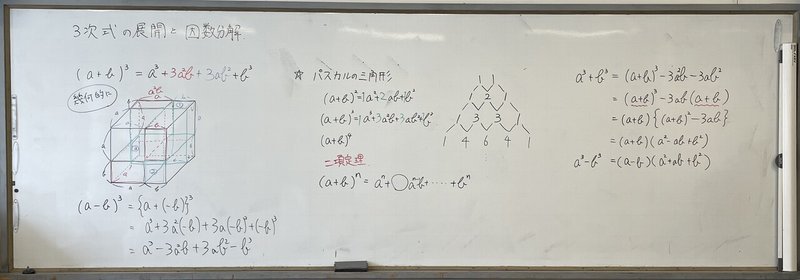 3次式の展開と因数分解
(a+b)³ = a³+3a²b+3ab²+b³
幾何的に
a²b
(a-b)³ = {a+(-b)}³
= a³+3a²(-b)+3a(-b)²+(-b)³
= a³-3a²b+3ab²-b³
☆ パスカルの三角形
(a+b)²=1a²+2ab+1b²
(a+b)³=1a³+3a²b+3ab²+1b³
(a+b)⁴
二項定理
(a+b)ⁿ = aⁿ+◯aⁿb+‥‥+bⁿ
1 1
1 2 1
1 3 3 1
1 4 6 4 1
a³+b³ = (a+b)³-3a²b-3ab²
= (a+b)³-3ab(a+b)
= (a+b){(a+b)²-3ab}
= (a+b)(a²-ab+b²)
a³-b³ = (a-b)(a²+ab+b²)